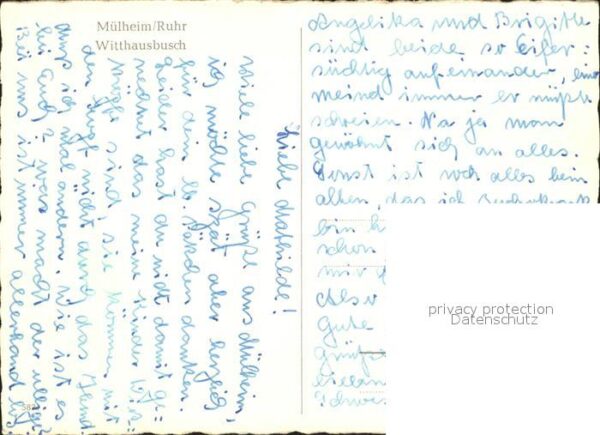 Mülheim/Ruhr
Witthausbusch
Liebe Mathilde!
viele liebe Grüße aus Mülheim,
ich möchte spät aber herzlich
für dein lb. Päckchen danken.
Leider hast du nicht damit ge-
rechnet das meine Kinder
sind! sie können mit
den nicht durch das
muß ich mal ändern. Wie ist es
bei Euch? was macht der
Bei uns ist immer allerhand los.
Angelika und Brigitte
sind beide so eifer-
süchtig aufeinander, eine
meint immer er müßte
schreien. Na ja man
gewöhnt sich an alles.
Sonst ist noch alles beim
alten, das ich
bin
schon
mir
Also
gute
grüß
privacy protection
Datenschutz